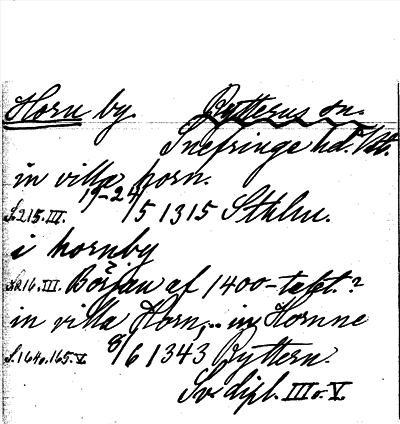 Horn by. Rytterns sn.
Snefringe hd. Vstl.
in villa horn.
S. 215. III. 19-24/5 1315 Sthlm.
i hornby
S. 216. III. Början af 1400-talet.?
in villa Horn, .. in Hornne
S. 164 o. 165. V. 8/6 1343 Ryttern.
Sv. dipl. III o. V.